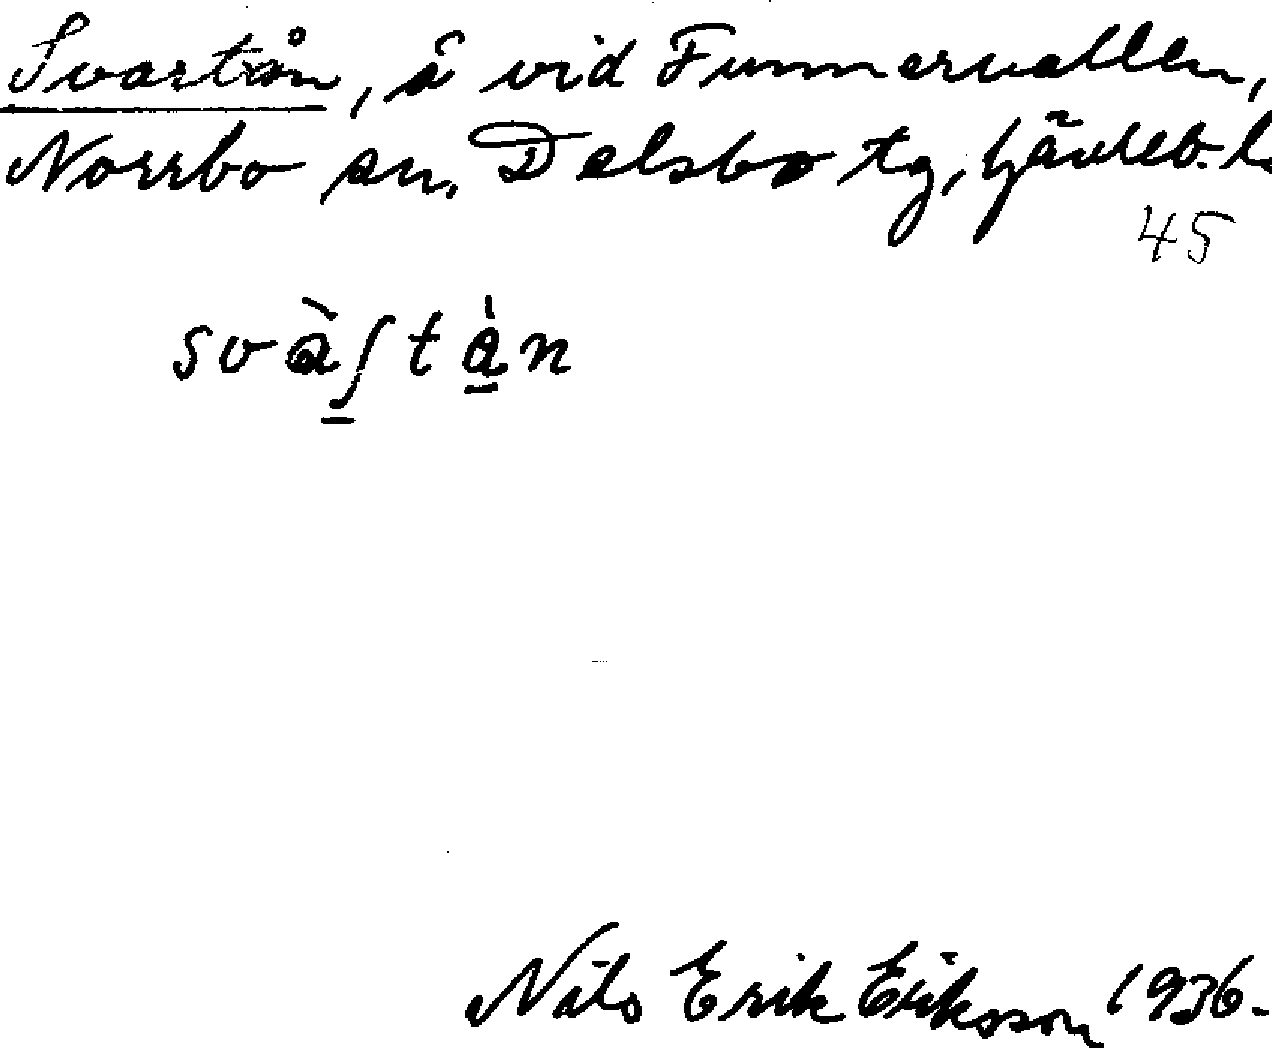 Svartån, å vid Funnervallen,
Norrbo sn, Delsbo tg, Gävleb. l
45
svàʃtàn
Nils Erik Eriksson 1936.